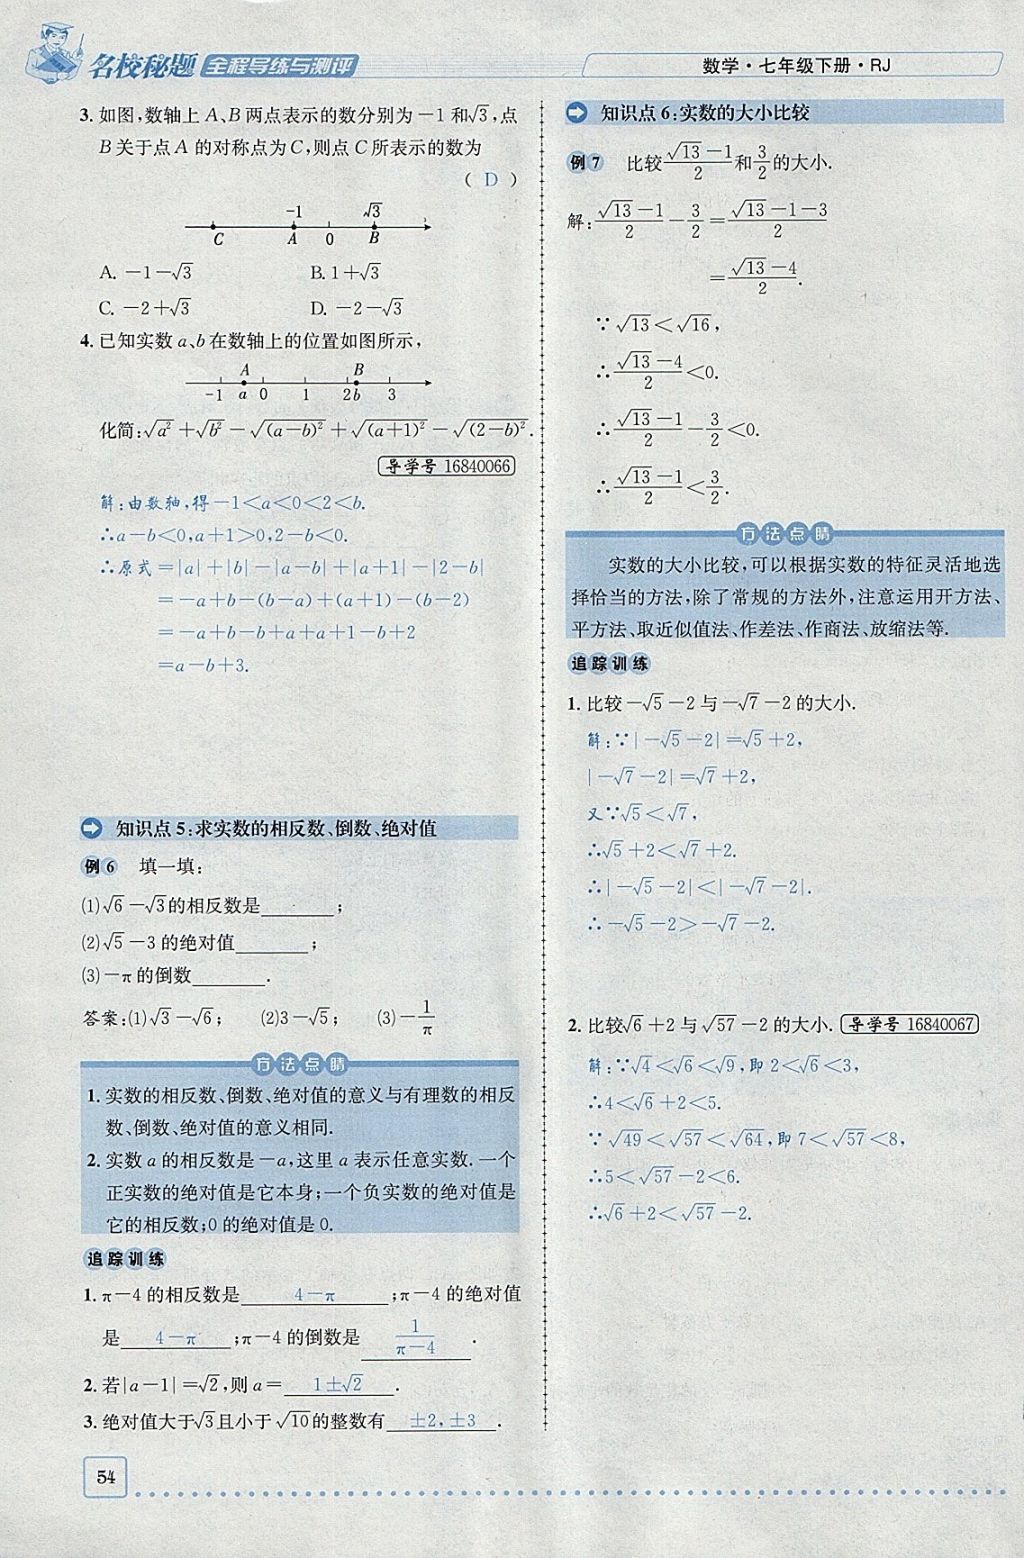 名校秘题 全程导练与测评
数学·七年级下册·RJ
3. 如图,数轴上A、B两点表示的数分别为-1和√3,点
B关于点A的对称点为C,则点C所表示的数为
( D )
-1 √3
C A 0 B
A. -1-√3 B. 1+√3
C. -2+√3 D. -2-√3
4. 已知实数a、b在数轴上的位置如图所示,
A B
-1 a 0 1 2 b 3
化简:√a² +√b² -√(a-b)² +√(a+1)² -√(2-b)².
导学号 16840066
解:由数轴,得-1<a<0<2<b.
∴a-b<0,a+1>0,2-b<0.
∴原式=|a|+|b|-|a-b|+|a+1|-|2-b|
=-a+b-(b-a)+(a+1)-(b-2)
=-a+b-b+a+a+1-b+2
=a-b+3.
知识点5:求实数的相反数、倒数、绝对值
例6 填一填:
(1)√6-√3的相反数是______;
(2)√5-3的绝对值______;
(3)-π的倒数______.
答案:(1)√3-√6; (2)3-√5; (3)-1/π
方法点睛
1. 实数的相反数、倒数、绝对值的意义与有理数的相反
数、倒数、绝对值的意义相同.
2. 实数a的相反数是-a,这里a表示任意实数.一个
正实数的绝对值是它本身;一个负实数的绝对值是
它的相反数;0的绝对值是0.
追踪训练
1. π-4的相反数是 4-π ;π-4的绝对值
是 4-π ;π-4的倒数是 1/(π-4) .
2. 若|a-1|=√2,则a= 1±√2 .
3. 绝对值大于√3且小于√10的整数有 ±2,±3 .
54
知识点6:实数的大小比较
例7 比较(√13-1)/2和3/2的大小.
解:(√13-1)/2-3/2=(√13-1-3)/2
=(√13-4)/2.
∵√13<√16,
∴(√13-4)/2<0.
∴(√13-1)/2-3/2<0.
∴(√13-1)/2<3/2.
方法点睛
实数的大小比较,可以根据实数的特征灵活地选
择恰当的方法,除了常规的方法外,注意运用开方法、
平方法、取近似值法、作差法、作商法、放缩法等.
追踪训练
1. 比较-√5-2与-√7-2的大小.
解:∵|-√5-2|=√5+2,
|-√7-2|=√7+2,
又∵√5<√7,
∴√5+2<√7+2.
∴|-√5-2|<|-√7-2|.
∴-√5-2>-√7-2.
2. 比较√6+2与√57-2的大小. 导学号 16840067
解:∵√4<√6<√9,即2<√6<3,
∴4<√6+2<5.
∵√49<√57<√64,即7<√57<8,
∴5<√57-2<6.
∴√6+2<√57-2.